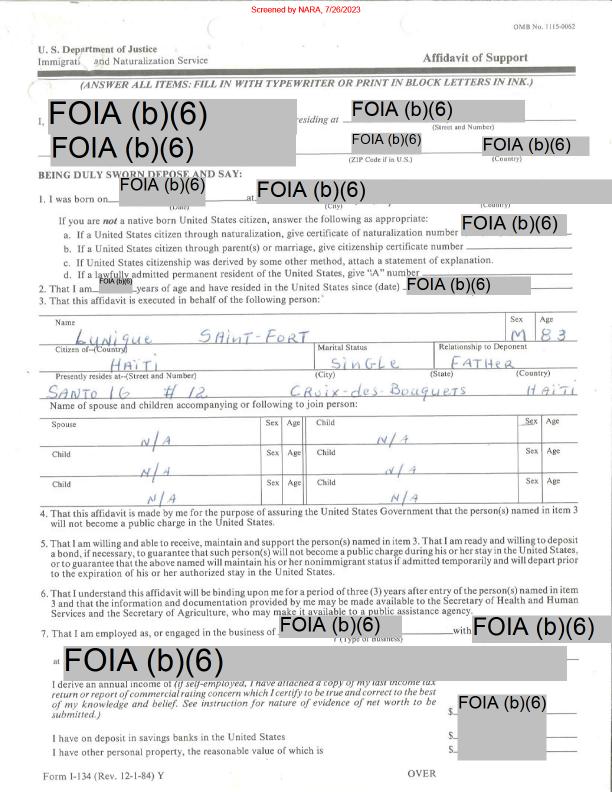 Screened by NARA, 7/26/2023
OMB No. 1115-0062
U. S. Department of Justice
Immigrati and Naturalization Service
Affidavit of Support
(ANSWER ALL ITEMS: FILL IN WITH TYPEWRITER OR PRINT IN BLOCK LETTERS IN INK.)
I, FOIA (b)(6) esiding at FOIA (b)(6)
(Street and Number)
FOIA (b)(6) FOIA (b)(6) FOIA (b)(6)
(ZIP Code if in U.S.) (Country)
BEING DULY SWORN DEPOSE AND SAY:
1. I was born on FOIA (b)(6) at FOIA (b)(6)
(City) (Country)
If you are not a native born United States citizen, answer the following as appropriate:
a. If a United States citizen through naturalization, give certificate of naturalization number FOIA (b)(6)
b. If a United States citizen through parent(s) or marriage, give citizenship certificate number
c. If United States citizenship was derived by some other method, attach a statement of explanation.
d. If a lawfully admitted permanent resident of the United States, give "A" number
2. That I am FOIA (b)(6) years of age and have resided in the United States since (date) FOIA (b)(6)
3. That this affidavit is executed in behalf of the following person:
Name Sex Age
Lunique SAINT-FORT M 83
Citizen of--(Country) Marital Status Relationship to Deponent
HAITI SINGLE FATHER
Presently resides at--(Street and Number) (City) (State) (Country)
SANTO 16 # 12 CROIX-des-BouqueTS HAITI
Name of spouse and children accompanying or following to join person:
Spouse Sex Age Child Sex Age
N/A N/A
Child Sex Age Child Sex Age
N/A N/A
Child Sex Age Child Sex Age
N/A N/A
4. That this affidavit is made by me for the purpose of assuring the United States Government that the person(s) named in item 3
will not become a public charge in the United States.
5. That I am willing and able to receive, maintain and support the person(s) named in item 3. That I am ready and willing to deposit
a bond, if necessary, to guarantee that such person(s) will not become a public charge during his or her stay in the United States,
or to guarantee that the above named will maintain his or her nonimmigrant status if admitted temporarily and will depart
prior to the expiration of his or her authorized stay in the United States.
6. That I understand this affidavit will be binding upon me for a period of three (3) years after entry of the person(s) named in item
3 and that the information and documentation provided by me may be made available to the Secretary of Health and Human
Services and the Secretary of Agriculture, who may make it available to a public assistance agency.
7. That I am employed as, or engaged in the business of FOIA (b)(6) with FOIA (b)(6)
(Type of Business)
at FOIA (b)(6)
I derive an annual income of (if self-employed, I have attached a copy of my last income tax
return or report of commercial rating concern which I certify to be true and correct to the best
of my knowledge and belief. See instruction for nature of evidence of net worth to be
submitted.) $ FOIA (b)(6)
I have on deposit in savings banks in the United States $
I have other personal property, the reasonable value of which is $
Form I-134 (Rev. 12-1-84) Y OVER